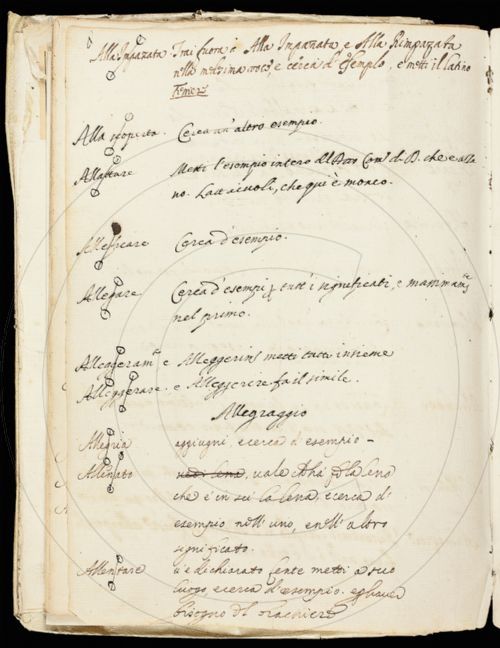 Alla Impazata. Trai fuora a Alla Impazzata e Alla Rimpazzata
nella medesima voce e cerca d'esempio, e metti il latino
Temere
Alla scoperta. Cerca un'altro esempio.
Allattare Metti l'esempio intero del che e alla
no. Lattaiuoli, che qui è monco.
Allessare Cerca d'esempio.
Allegare Cerca d'esempi p tutt'i significati, e massimam.te
nel primo.
Alleggeram.to e Alleggerim.to metti tutti insieme
Alleggerare. e Alleggerire fa il simile.
Allegraggio
Allegria aggiugni, e cerca d'esempio -
Allenato vedi lena, vale
che è in sul la lena, e cerca d'
esempio nell'uno, e nell'altro
significato.
Allentare metti a suo
luogo e cerca d'esempio.
bisogno di